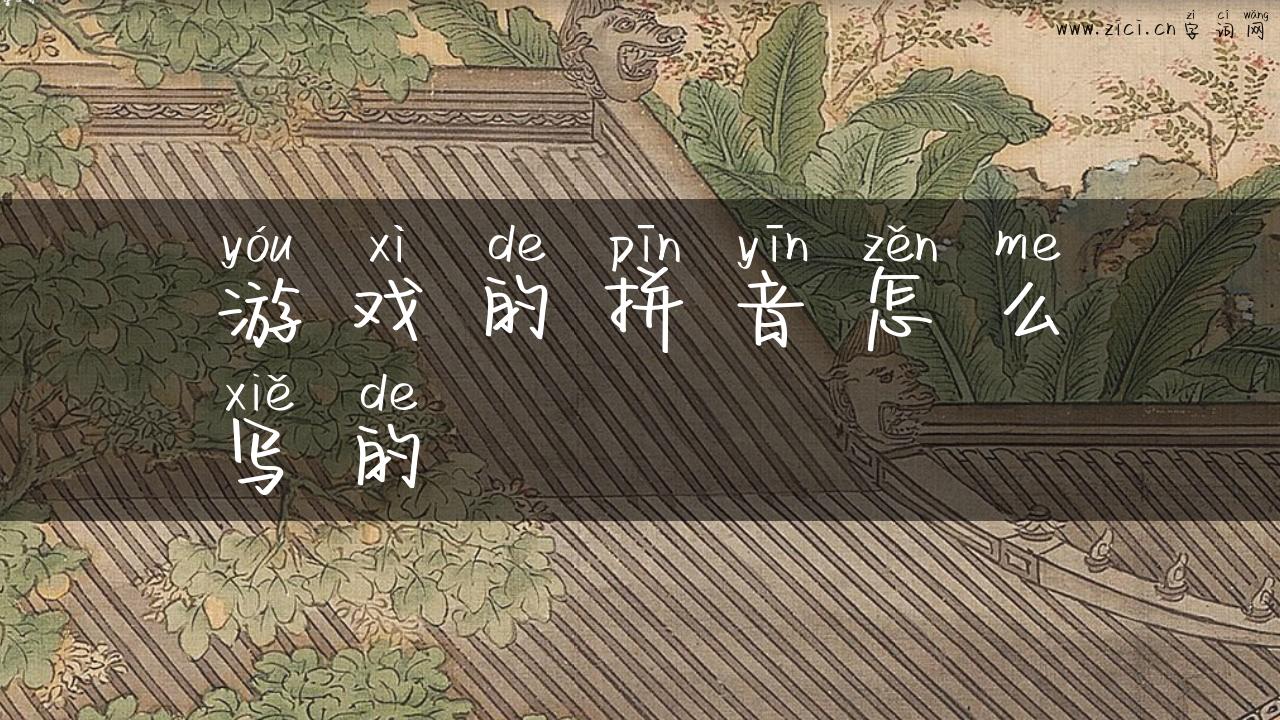 zì cí wǎng
www.zici.cn 字 词 网
yóu xì de pīn yīn zěn me
游 戏 的 拼 音 怎 么
xiě de
写 的